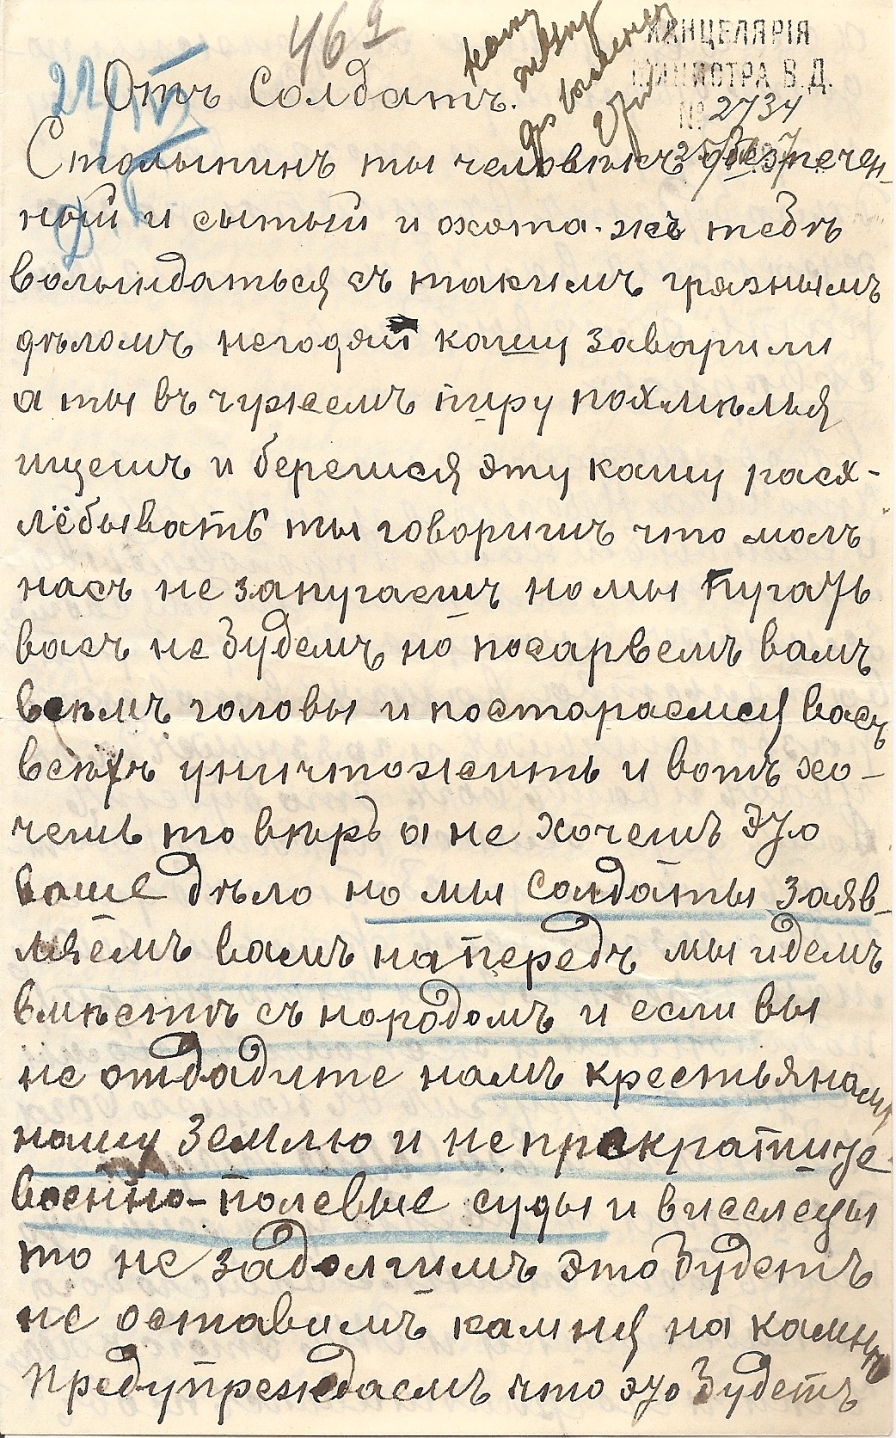 469
КАНЦЕЛЯРІЯ
МИНИСТРА В.Д.
№ 2734
Отъ Солдатъ.
Столыпинъ ты человѣкъ обезпечен-
ный и сытый и охота-жъ тебѣ
волындаться съ такимъ грязнымъ
дѣломъ негодяи кашу заварили
а ты въ чужемъ пиру похмѣлья
ищешъ и берешся эту кашу расх-
лёбывать ты говоришъ что молъ
насъ не запугаешъ но мы пугать
васъ не будемъ но посарвемъ вамъ
всѣмъ головы и постораемся васъ
всѣхъ уничтожить и вотъ хо-
чешь то вѣръ а не хочешъ это
ваше дѣло но мы солдаты заяв-
ляемъ вамъ напередъ мы идемъ
вмѣстѣ съ нородомъ и если вы
не отдадите намъ крестьянамъ
нашу землю и непрекратите
военно-полевые суды и виселецы
то не задолгимъ это будетъ
не оставимъ камня на камнѣ
предупреждаемъ что это будетъ